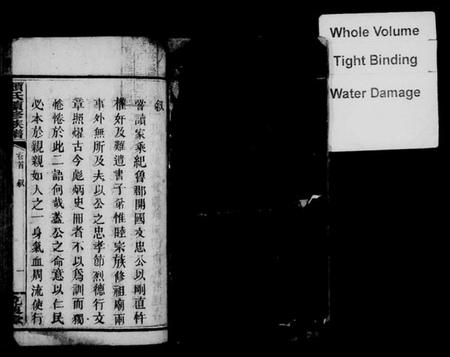 叙
嘗讀家乘紀魯郡開國文忠公以剛直忤
權奸及難遺書子弟惟睦宗族修祖廟兩
事外無所及夫以公之忠孝節烈德行文
章照耀古今彪炳史冊者不以為訓而獨
惓惓於此二語何哉蓋公之命意以仁民
必本於親親如人之一身氣血周流使行
顏氏續修族譜
卷首 叙
一
Whole Volume
Tight Binding
Water Damage